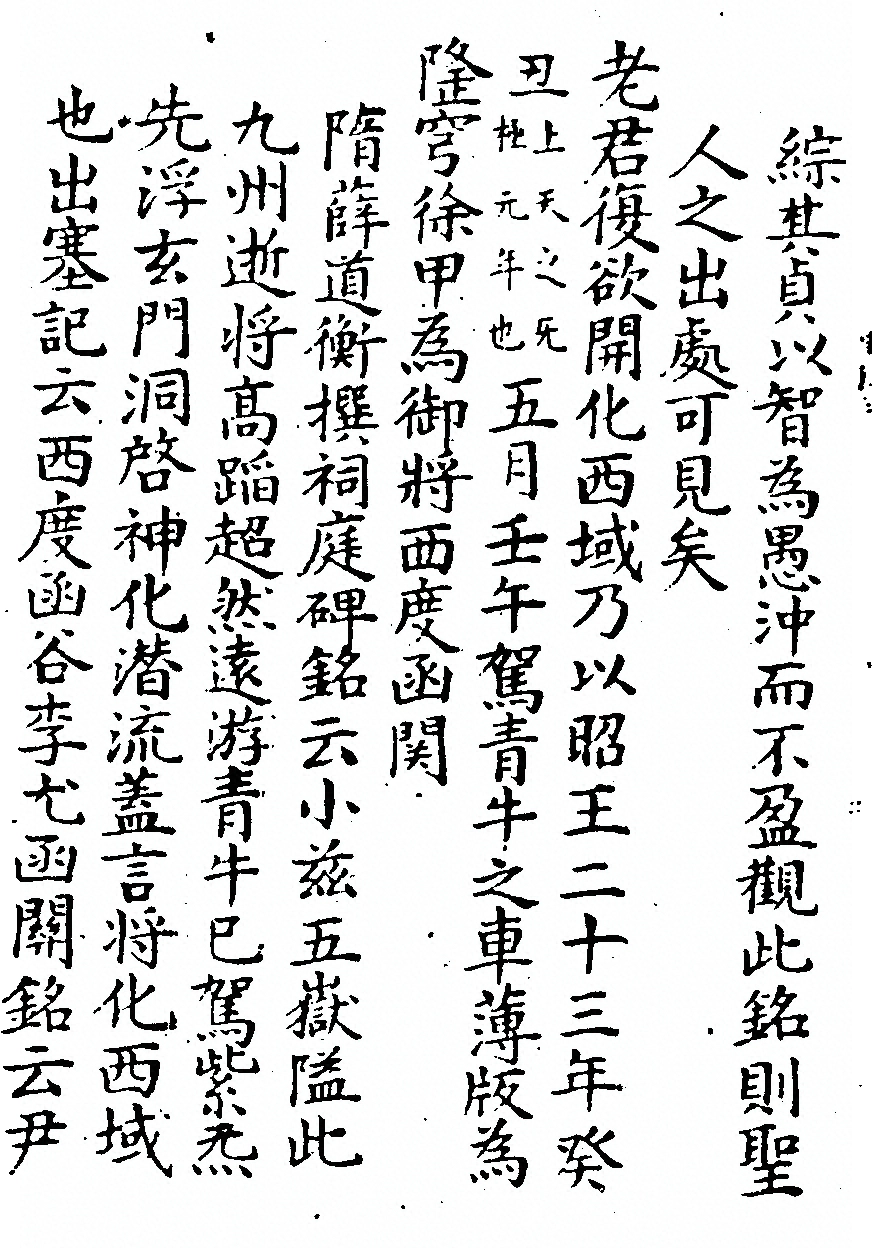 綜其貞以智為愚沖而不盈觀此銘則聖
人之出處可見矣
老君復欲開化西域乃以昭王二十三年癸
丑上天之旡極元年也五月壬午駕青牛之車薄版為
隆穹徐甲為御將西度函関
隋薛道衡撰祠庭碑銘云小兹五嶽隘此
九州逝将髙蹈超然遠游青牛巳駕紫炁
先浮玄門洞啓神化潜流蓋言将化西域
也出塞記云西度函谷李尤函關銘云尹